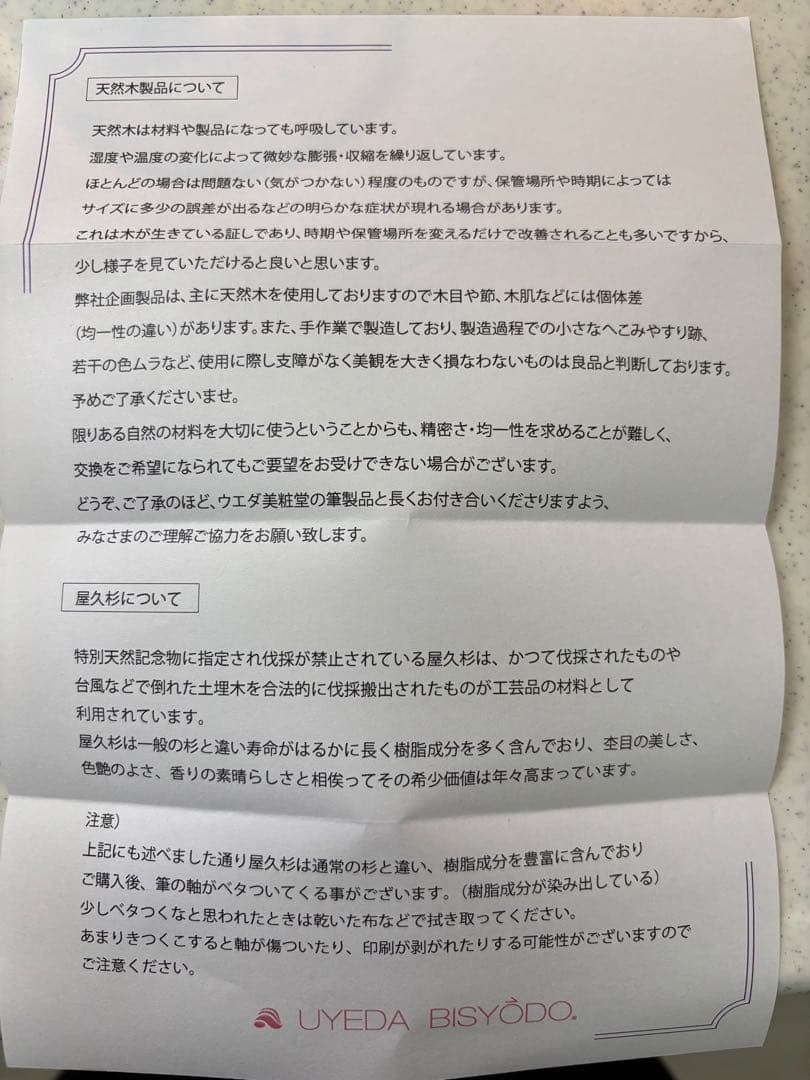 天然木製品について
天然木は材料や製品になっても呼吸しています。
湿度や温度の変化によって微妙な膨張・収縮を繰り返しています。
ほとんどの場合は問題ない（気がつかない）程度のものですが、保管場所や時期によっては
サイズに多少の誤差が出るなどの明らかな症状が現れる場合があります。
これは木が生きている証しであり、時期や保管場所を変えるだけで改善されることも多いですから、
少し様子を見ていただけると良いと思います。
弊社企画製品は、主に天然木を使用しておりますので木目や節、木肌などには個体差
（均一性の違い）があります。また、手作業で製造しており、製造過程での小さなへこみやすり跡、
若干の色ムラなど、使用に際し支障がなく美観を大きく損なわないものは良品と判断しております。
予めご了承くださいませ。
限りある自然の材料を大切に使うということからも、精密さ・均一性を求めることが難しく、
交換をご希望になられてもご要望をお受けできない場合がございます。
どうぞ、ご了承のほど、ウエダ美粧堂の筆製品と長くお付き合いくださりますよう、
みなさまのご理解ご協力をお願い致します。
屋久杉について
特別天然記念物に指定され伐採が禁止されている屋久杉は、かつて伐採されたものや
台風などで倒れた土埋木を合法的に伐採搬出されたものが工芸品の材料として
利用されています。
屋久杉は一般の杉と違い寿命がはるかに長く樹脂成分を多く含んでおり、杢目の美しさ、
色艶のよさ、香りの素晴らしさと相俟ってその希少価値は年々高まっています。
注意）
上記にも述べました通り屋久杉は通常の杉と違い、樹脂成分を豊富に含んでおり
ご購入後、筆の軸がベタついてくる事がございます。（樹脂成分が染み出している）
少しベタつくなと思われたときは乾いた布などで拭き取ってください。
あまりきつくこすると軸が傷ついたり、印刷が剥がれたりする可能性がございますので
ご注意ください。
UYEDA BISYODO